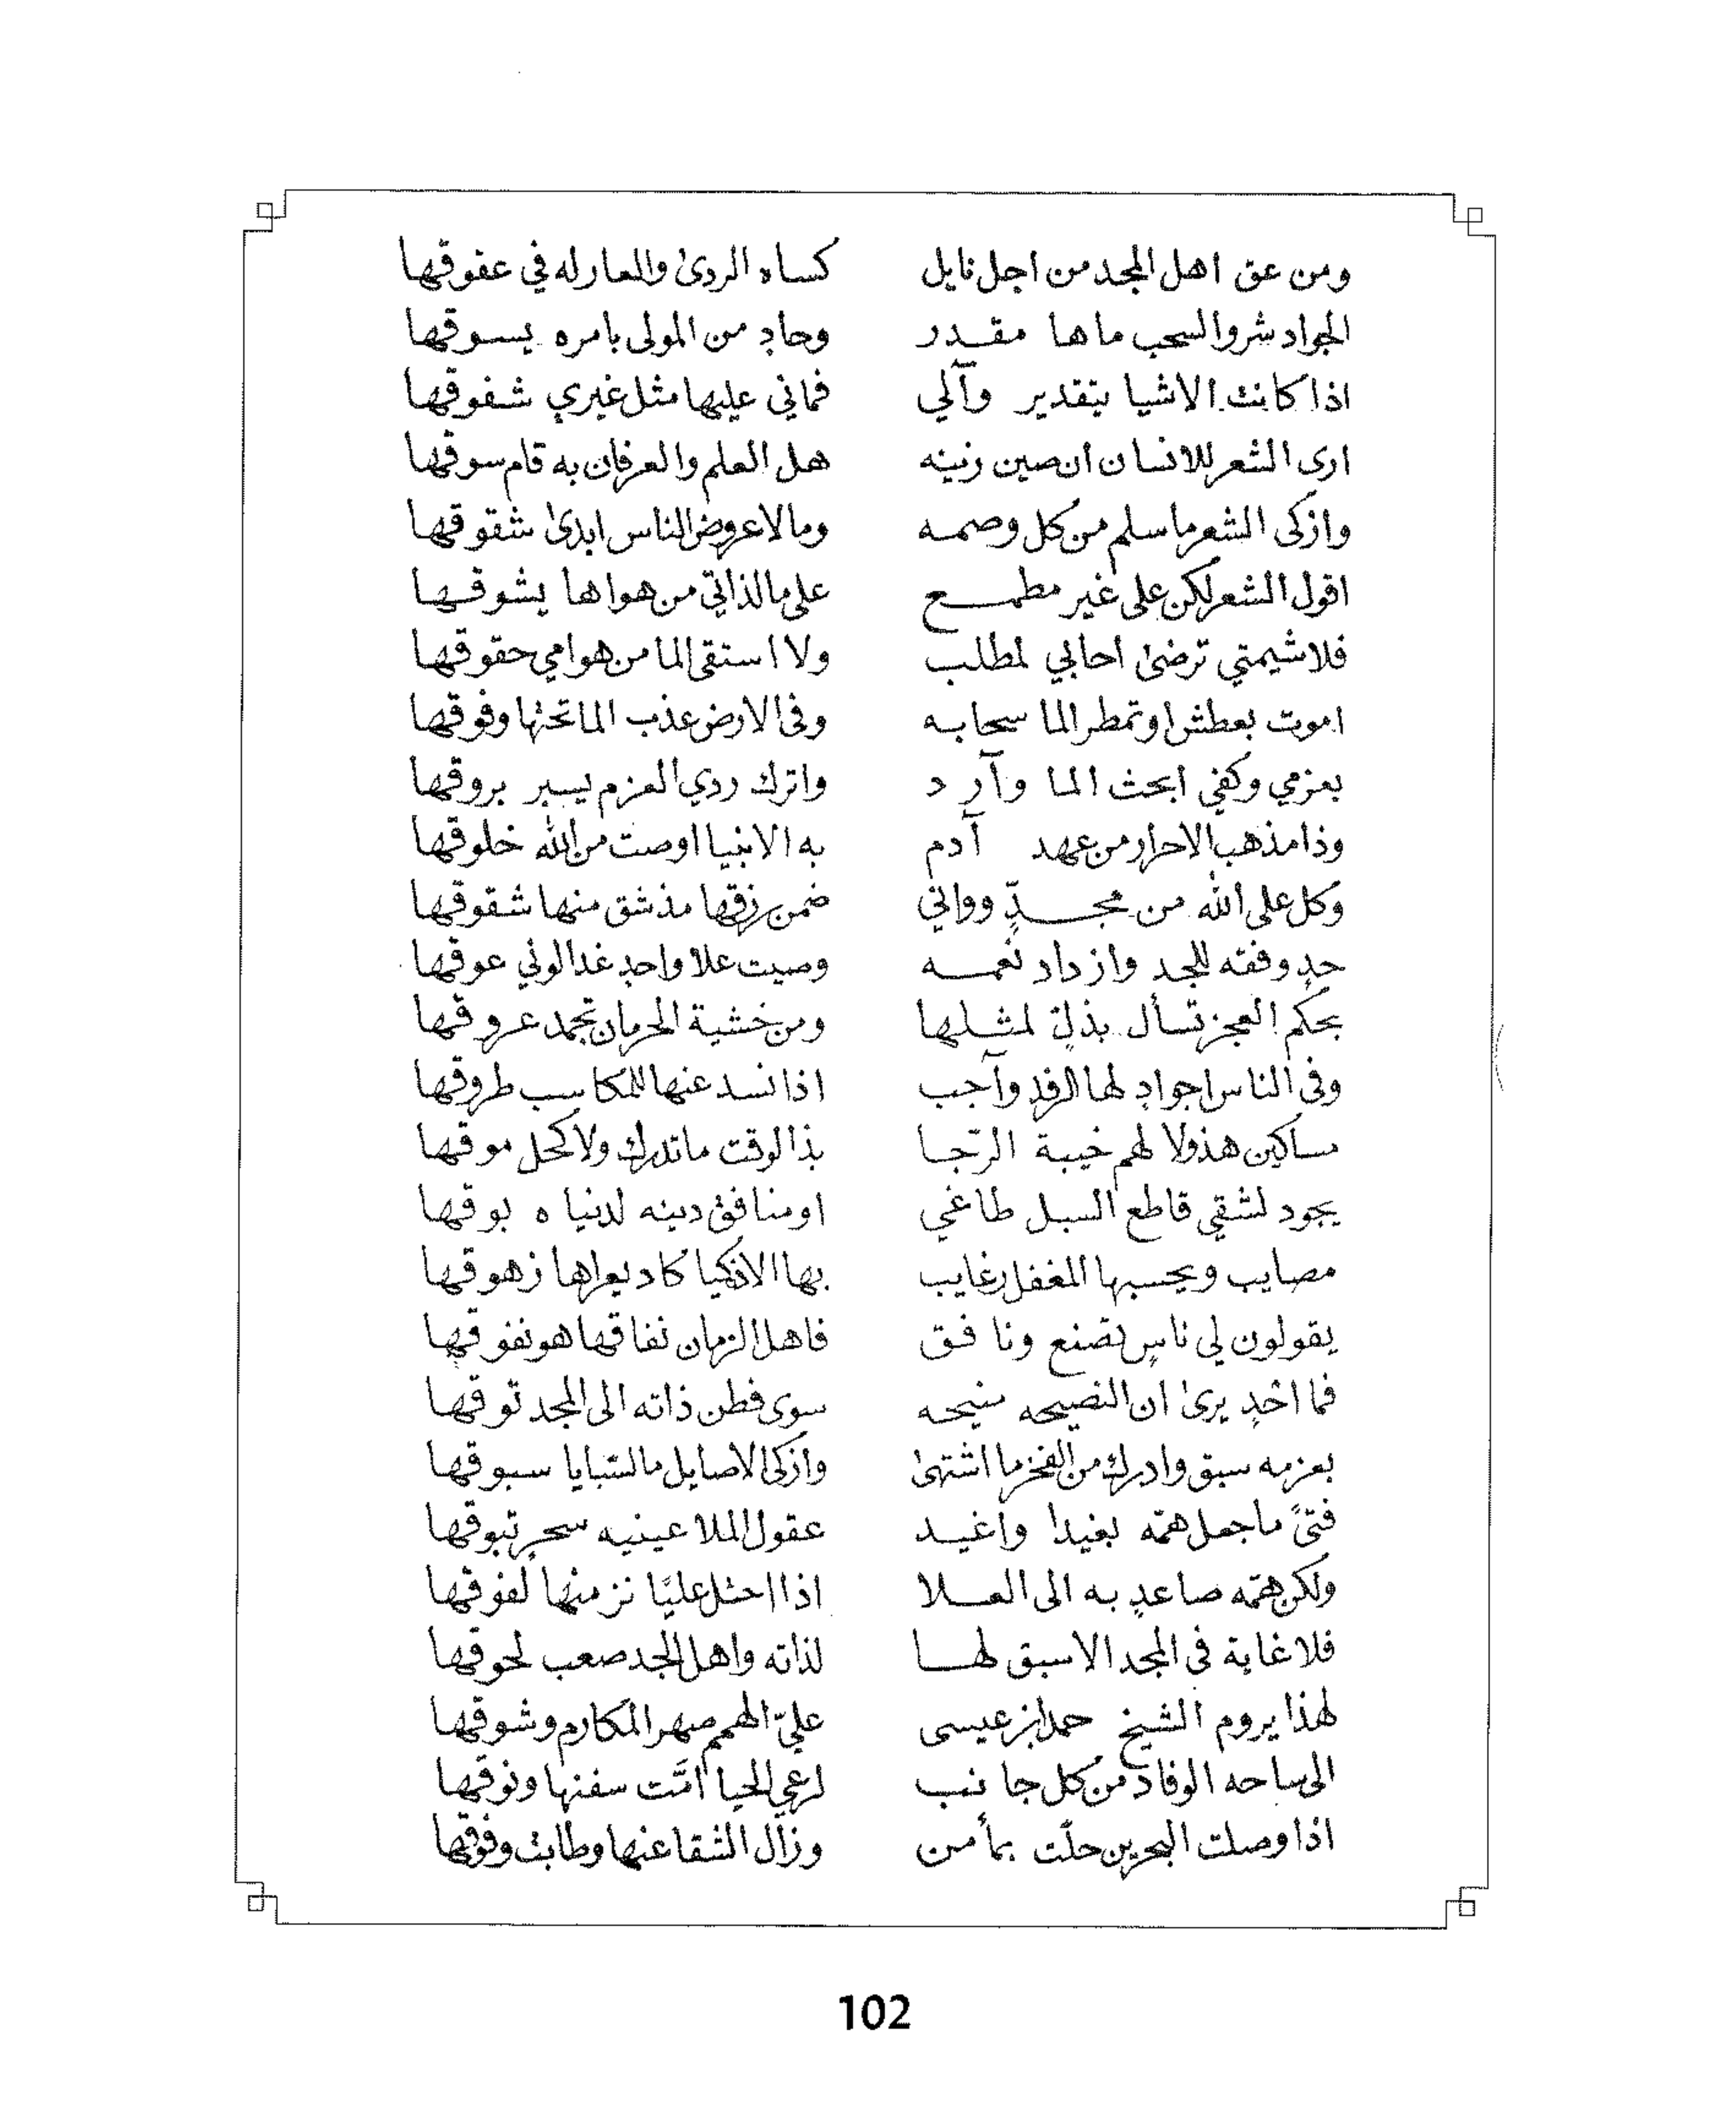 ومن عق اهل المجد من اجل نايل كساه الردىٰ والعار له في عقوقها
الجواد شروا السحب ماها مقدر وحادٍ من المولى بامره يسوقها
اذا كانت الاشيا بتقدير وآلي فماني عليها مثل غيري شفوقها
ارى الشعر للانسان ان صين زينه هل العلم والعرفان به قام سوقها
وازكى الشعر ما سلم من كل وصمه ومالا عروض الناس ابدىٰ شقوقها
اقول الشعر لكن على غير مطمع على ما لذاتي من هواها يشوقها
فلا شيمتي ترضىٰ احابي لمطلب ولا استقى الما من هوامي حقوقها
اموت بعطش او تمطر الما سحابه وفى الارض عذب الما تحتها وفوقها
بعزمي وكفي ابحث الما وآرد واترك ردي العزم يسبر بروقها
وذا مذهب الاحرار من عهد آدم به الانبيا اوصت من الله خلوقها
وكل على الله من مجدٍّ وواني ضمن رزقها مذ شق منها شقوقها
حدٍ وفقه للجد وازداد نعمه وصيت علا واحدٍ غدا لوني عوقها
بحكم العجز تسأل بذلٍ لمثلها ومن خشية الحرمان تجمد عروقها
وفى الناس اجوادٍ لها الرفد وآجب اذا نسد عنها للمكاسب طروقها
مساكين هذولا لهم خيبة الرّجا بذا الوقت ما تدرك ولا كحل موقها
يجود لشقي قاطع السبل طاغي او منافق دينه لدنياه بوقها
مصايب ويحسبها المغفل رغايب بها الاذكيا كاد يعراها زهوقها
يقولون لي ناسٍ تصنع ونافق فاهل الزمان نفاقها هو نفوقها
فما احدٍ يرىٰ ان النصيحه منيحه سوى فطن ذاته الى المجد توقها
بعزمه سبق وادرك من الفخر ما اشتهىٰ وازكى الاصايل مالستبايا سبوقها
فتىً ما جعل همّه بغيدا واغيد عقول الملا عينيه سحرٍ تبوقها
ولكن همّه صاعدٍ به الى العلا اذا احتل عليًا نز منها لفوقها
فلا غاية فى المجد الا سبق لها لذاته واهل المجد صعب لحوقها
لهذا يروم الشيخ حمد ابن عيسى عليّ الهمم صهر المكارم وشوقها
الى ساحه الوفاد من كل جانب لرعي الحيا امّت سفنها ونوقها
اذا وصلت البحرين حلّت بمأمن وزال الشقا عنها وطابت وفوقها
102